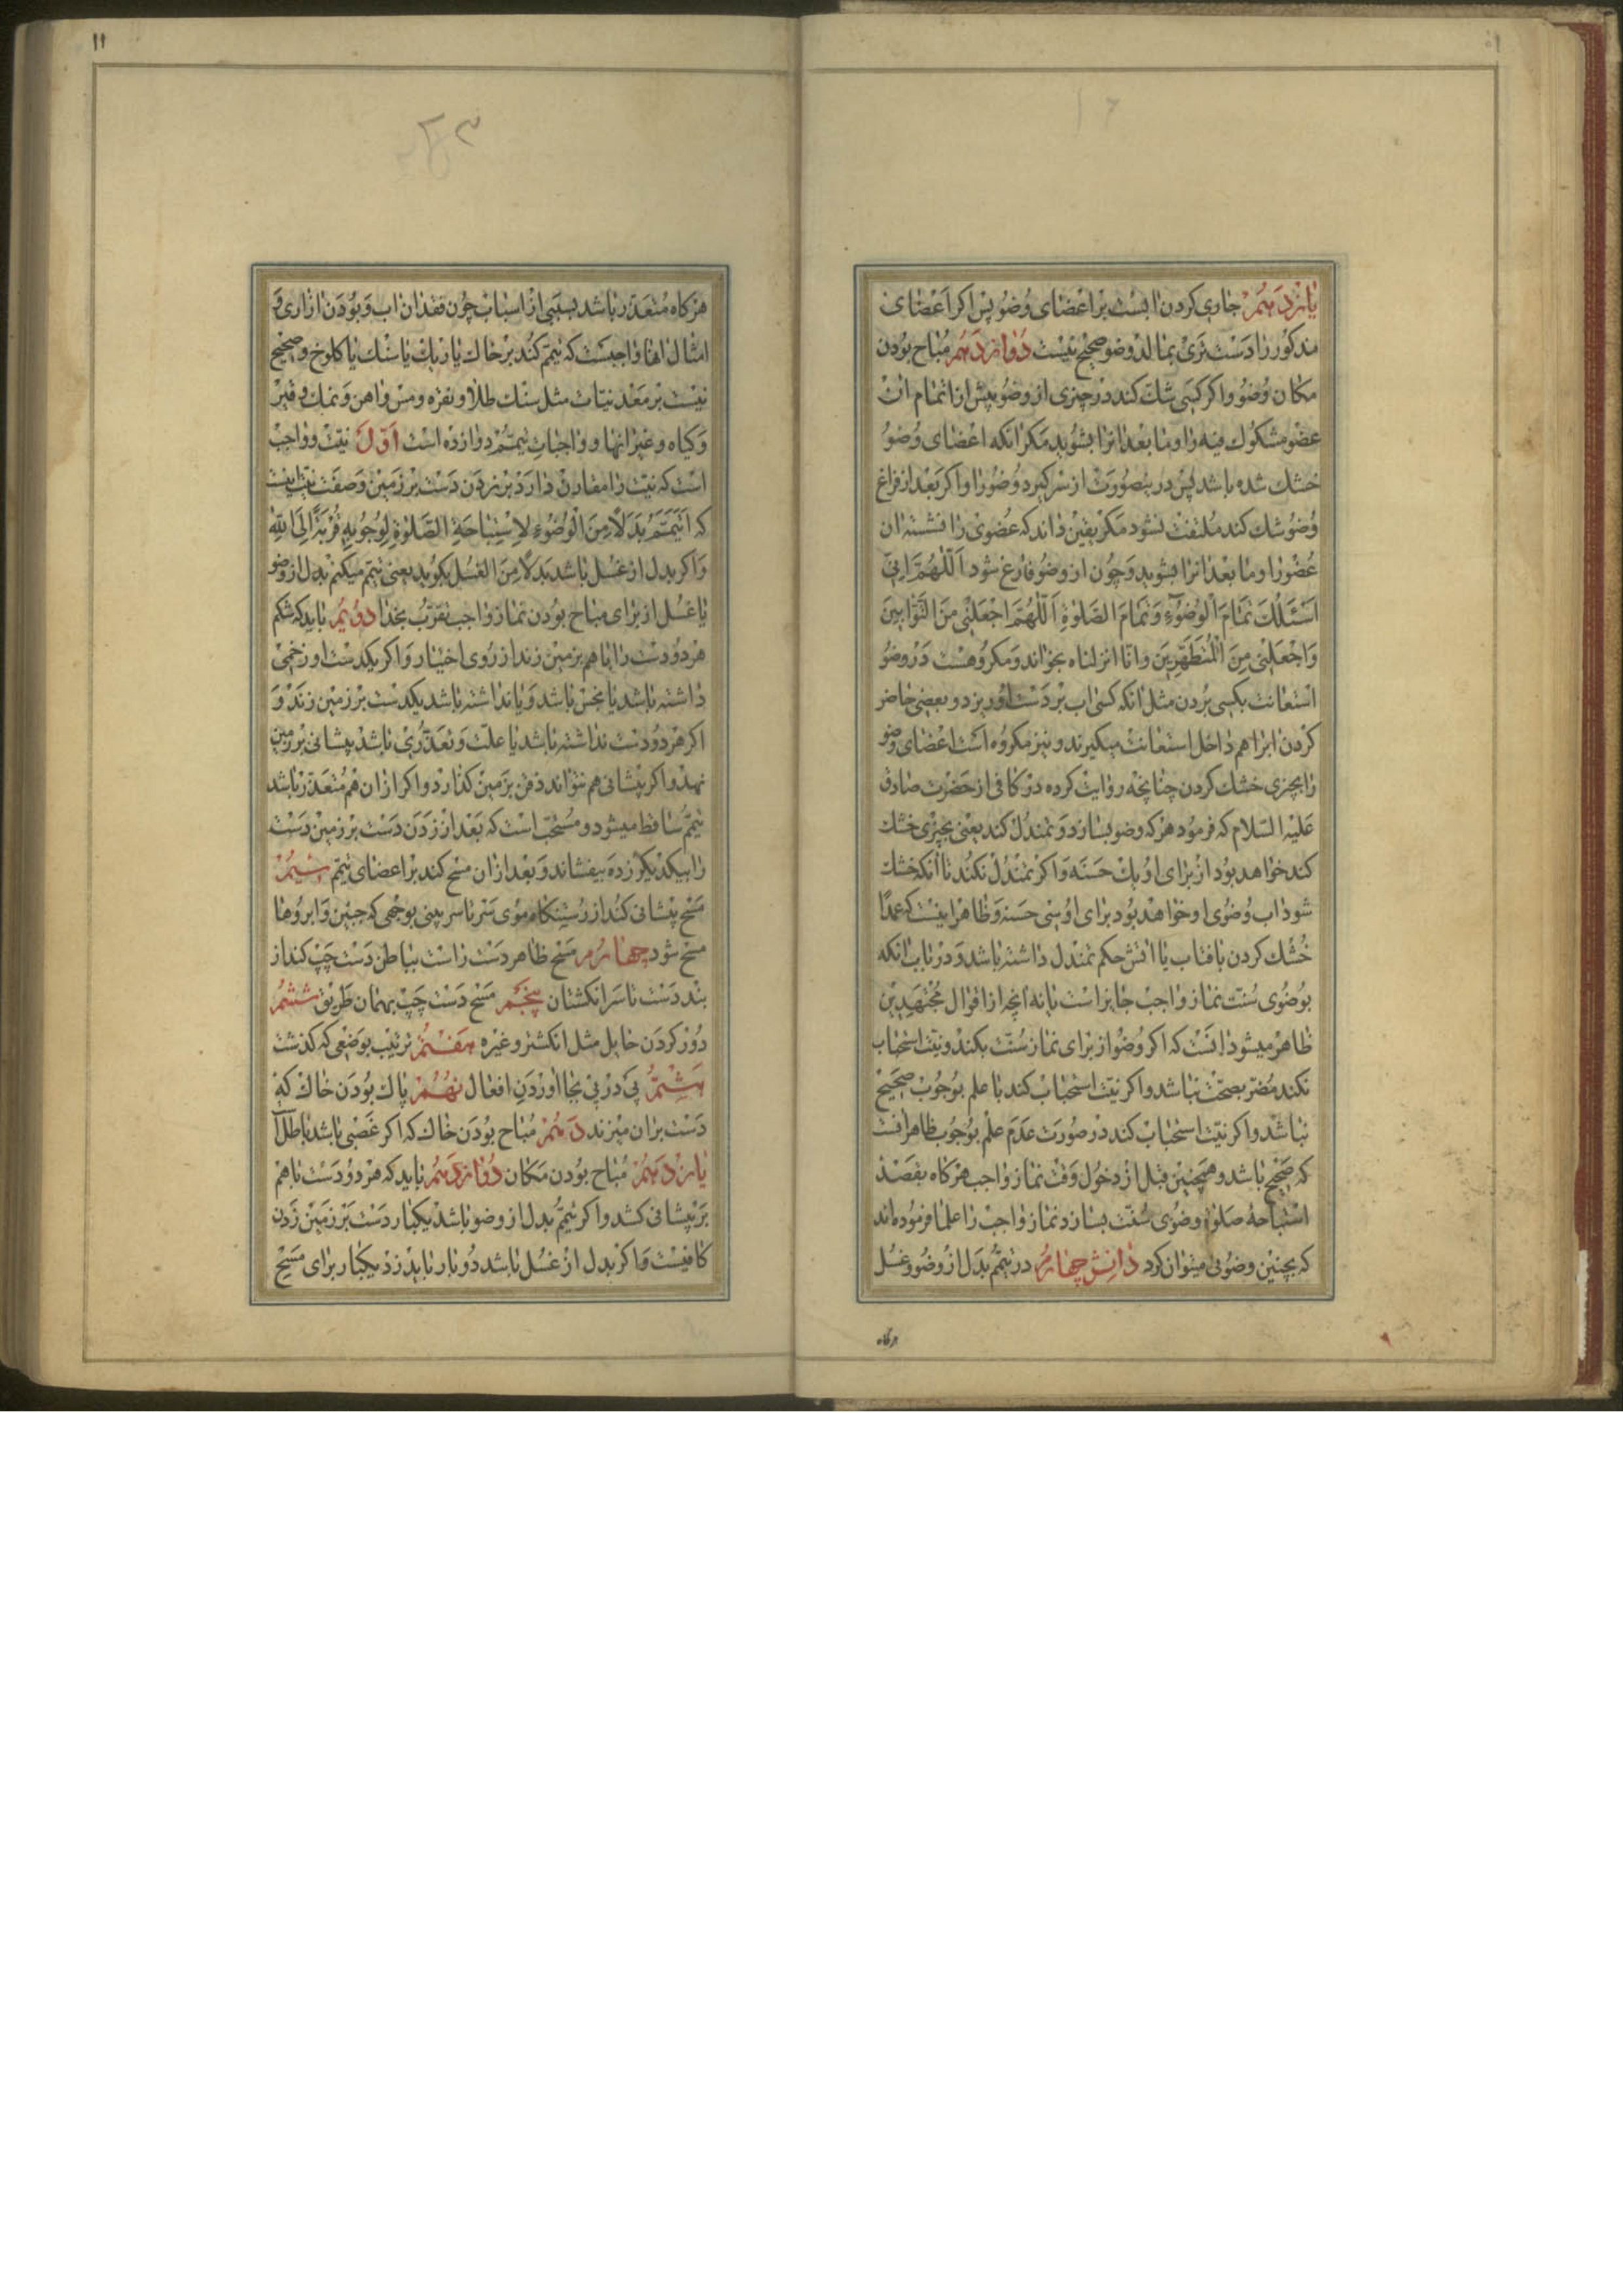 ۱۰
یازدهم جاری کردن ابست بر اعضای وضو پس اکر اعضای
مذکور را دست تری بمالد وضو صحیح نیست دوازدهم مباح بودن
مکان وضو واکر کسی شک کند در چیزی از وضو پیش از اتمام ان
عضو مشکوک فیه را وما بعد انرا بشوید مکر انکه اعضای وضو
خشک شده باشد پس درینصورت از سر کیرد وضو را واکر بعد از فراغ
وضو شک کند ملتفت نشود مکر یقین داند که عضوی را نشسته ان
عضو را وما بعد انرا بشوید وچون از وضو فارغ شود اَللّهُمَّ اِنّی
اَسْئَلُکَ تَمامَ الْوُضُوءِ وَتَمامَ الصَّلوةِ اَللّهُمَّ اجْعَلْنی مِنَ التَّوّابینَ
وَاجْعَلْنی مِنَ الْمُتَطَهِّرینَ وانا انزلناه بخواند ومکروهست در وضو
استعانت بکسی بردن مثل انکه کسی اب بر دست او ریزد وبعضی حاضر
کردن ابرا هم داخل استعانت میکیرند ونیز مکروه است اعضای وضو
را بچیزی خشک کردن چنانچه روایت کرده در کافی از حضرت صادق
علیه السلام که فرمود هرکه وضو بسازد وتمندل کند یعنی بچیزی خشک
کند خواهد بود از برای او یک حسنه واکر تمندل نکند تا انکه خشک
شود اب وضوی او خواهد بود برای او سی حسنه وظاهر اینست که عمدا
خشک کردن بافتاب یا اتش حکم تمندل داشته باشد ودر باب انکه
بوضوی سنت نماز واجب جایز است یا نه انچه از اقوال مجتهدین
ظاهر میشود انست که اکر وضو از برای نماز سنت بکند ونیت استحباب
نکند مضر بصحت نباشد واکر نیت استحباب کند با علم بوجوب صحیح
نباشد واکر نیت استحباب کند در صورت عدم علم بوجوب ظاهر انست
که صحیح باشد وهمچنین قبل از دخول وقت نماز واجب هرکاه بقصد
استباحه صلوة وضوی سنت بسازد نماز واجب را علما فرموده اند
که بچنین وضوئی میتوان کرد دانش چهارم در تیمم بدل از وضو وغسل
هرکاه
۱۱
هرکاه متعذر باشد بسببی از اسباب چون فقدان اب وبودن ازاری و
امثال انها واجبست که تیمم کند بر خاک یا ریک یا سنک یا کلوخ وصحیح
نیست بر معدنیات مثل سنک طلا ونقره ومس واهن ونمک وقیر
وکیاه وغیر انها وواجبات تیمم دوازده است اول نیت وواجب
است که نیت را مقارن دارد بر زدن دست بر زمین وصفت نیت اینست
که اَتَیَمَّمُ بَدَلًا مِنَ الْوُضُوءِ لِاسْتِباحَةِ الصَّلوةِ لِوُجُوبِهِ قُرْبَةً اِلَی اللهِ
واکر بدل از غسل باشد بَدَلًا مِنَ الغُسْل بکوید یعنی تیمم میکنم بدل از وضو
یا غسل از برای مباح بودن نماز واجب تقرب بخدا دویم باید که شکم
هر دو دست را با هم بزمین زند از روی اختیار واکر یکدست او زخمی
داشته باشد یا نجس باشد ویا نداشته باشد یکدست بر زمین زند و
اکر هر دو دست نداشته باشد یا علت وتعذری باشد پیشانی بر زمین
نهد واکر پیشانی هم نتواند ذقن بزمین کذارد واکر از ان هم متعذر باشد
تیمم ساقط میشود ومستحب است که بعد از زدن دست بر زمین دست
را بیکدیکر زده بیفشاند وبعد از ان مسح کند بر اعضای تیمم سیم
مسح پیشانی کند از رستنکاه موی سر تا سر بینی بوجهی که جبین وابروها
مسح شود چهارم مسح ظاهر دست راست بباطن دست چپ کند از
بند دست تا سر انکشتان پنجم مسح دست چپ بهمان طریق ششم
دور کردن حایل مثل انکشتر وغیره هفتم ترتیب بوضعی که کذشت
هشتم پی در پی بجا اوردن افعال نهم پاک بودن خاک که
دست بران میزند دهم مباح بودن خاک که اکر غصبی باشد باطل
یازدهم مباح بودن مکان دوازدهم باید که هر دو دست با هم
بر پیشانی کشد واکر تیمم بدل از وضو باشد یکبار دست بر زمین زدن
کافیست واکر بدل از غسل باشد دو بار باید زد یکبار برای مسح